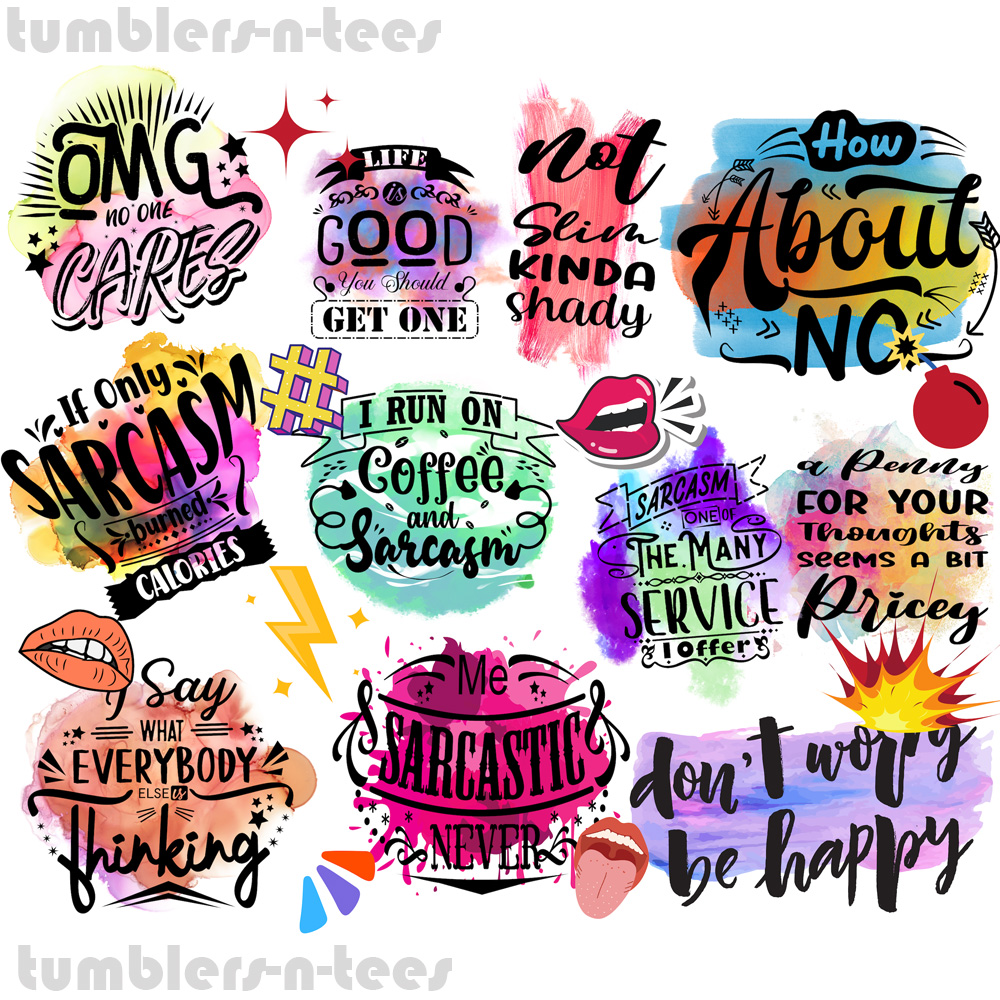 tumblers-n-tees
OMG
NO ONE
CARES
LIFE
is
GOOD
You Should
GET ONE
not
Slim
KINDA
shady
How
About
NO
If Only
SARCASM
burned
CALORIES
#
I RUN ON
Coffee
and
Sarcasm
SARCASM
ONE OF
THE MANY
SERVICE
I Offer
a Penny
FOR YOUR
Thoughts
SEEMS A BIT
Pricey
I Say
WHAT
EVERYBODY
ELSE is
Thinking
Me
SARCASTIC
NEVER
don't worry
be happy
tumblers-n-tees